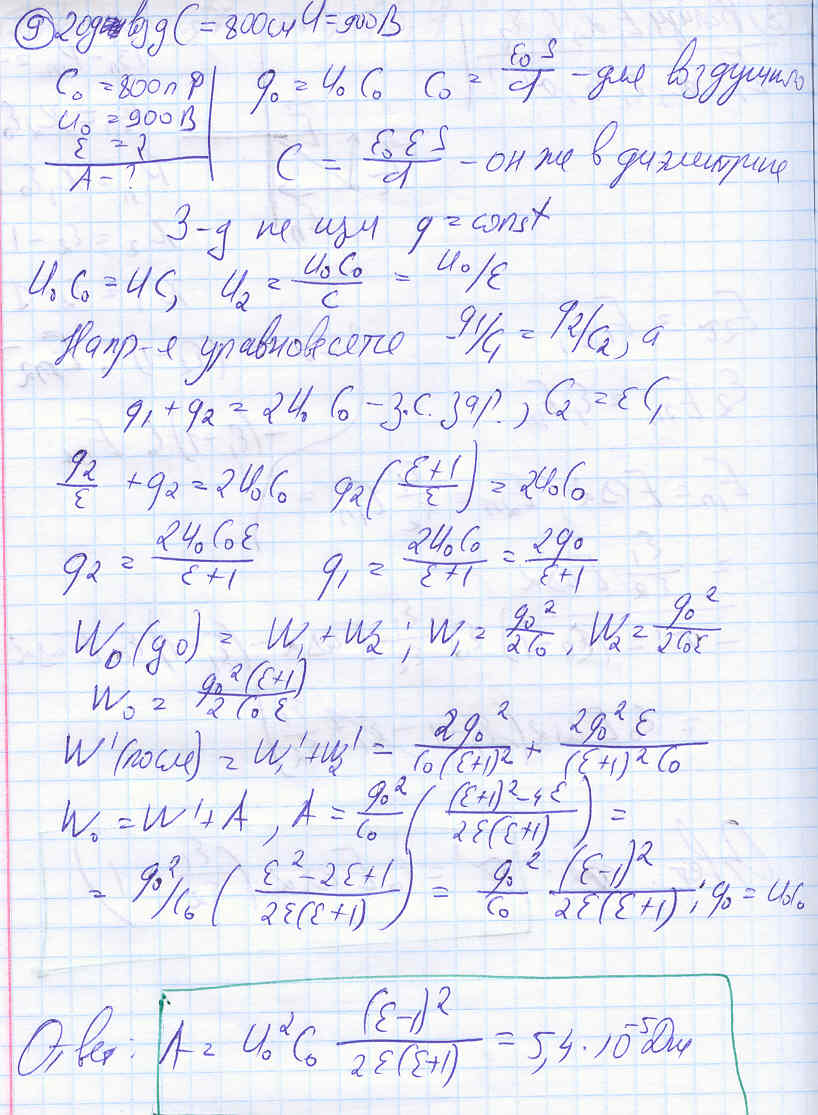 ⑨ 2 од возд C = 800см U = 900В
C₀ = 800пФ
U₀ = 900В
ε = 2
A - ?
q₀ = U₀ C₀ C₀ = ε₀ S / d - для воздушного
C = ε₀ ε S / d - он же в диэлектрике
З-д не изм q = const
U₀ C₀ = UC, U₂ = U₀C₀ / C = U₀/ε
Напр-я q₁/C₁ = q₂/C₂, а
q₁ + q₂ = 2U₀ C₀ - З.С. зар., C₂ = εC₁
q₂/ε + q₂ = 2U₀C₀ q₂((ε+1)/ε) = 2U₀C₀
q₂ = 2U₀C₀ε / (ε+1) q₁ = 2U₀C₀ / (ε+1) = 2q₀ / (ε+1)
W₀(до) = W₁ + W₂; W₁ = q₀² / 2C₀, W₂ = q₀² / 2C₀ε
W₀ = q₀²(ε+1) / 2C₀ε
W'(после) = W₁' + W₂' = 2q₀² / C₀(ε+1)² + 2q₀²ε / (ε+1)²C₀
W₀ = W' + A, A = q₀²/C₀ ( ((ε+1)² - 4ε) / 2ε(ε+1) ) =
= q₀²/C₀ ( (ε² - 2ε + 1) / 2ε(ε+1) ) = q₀²/C₀ (ε-1)² / 2ε(ε+1); q₀ = U₀C₀
Ответ: A = U₀² C₀ (ε-1)² / 2ε(ε+1) = 5,4 · 10⁻⁵ Дж